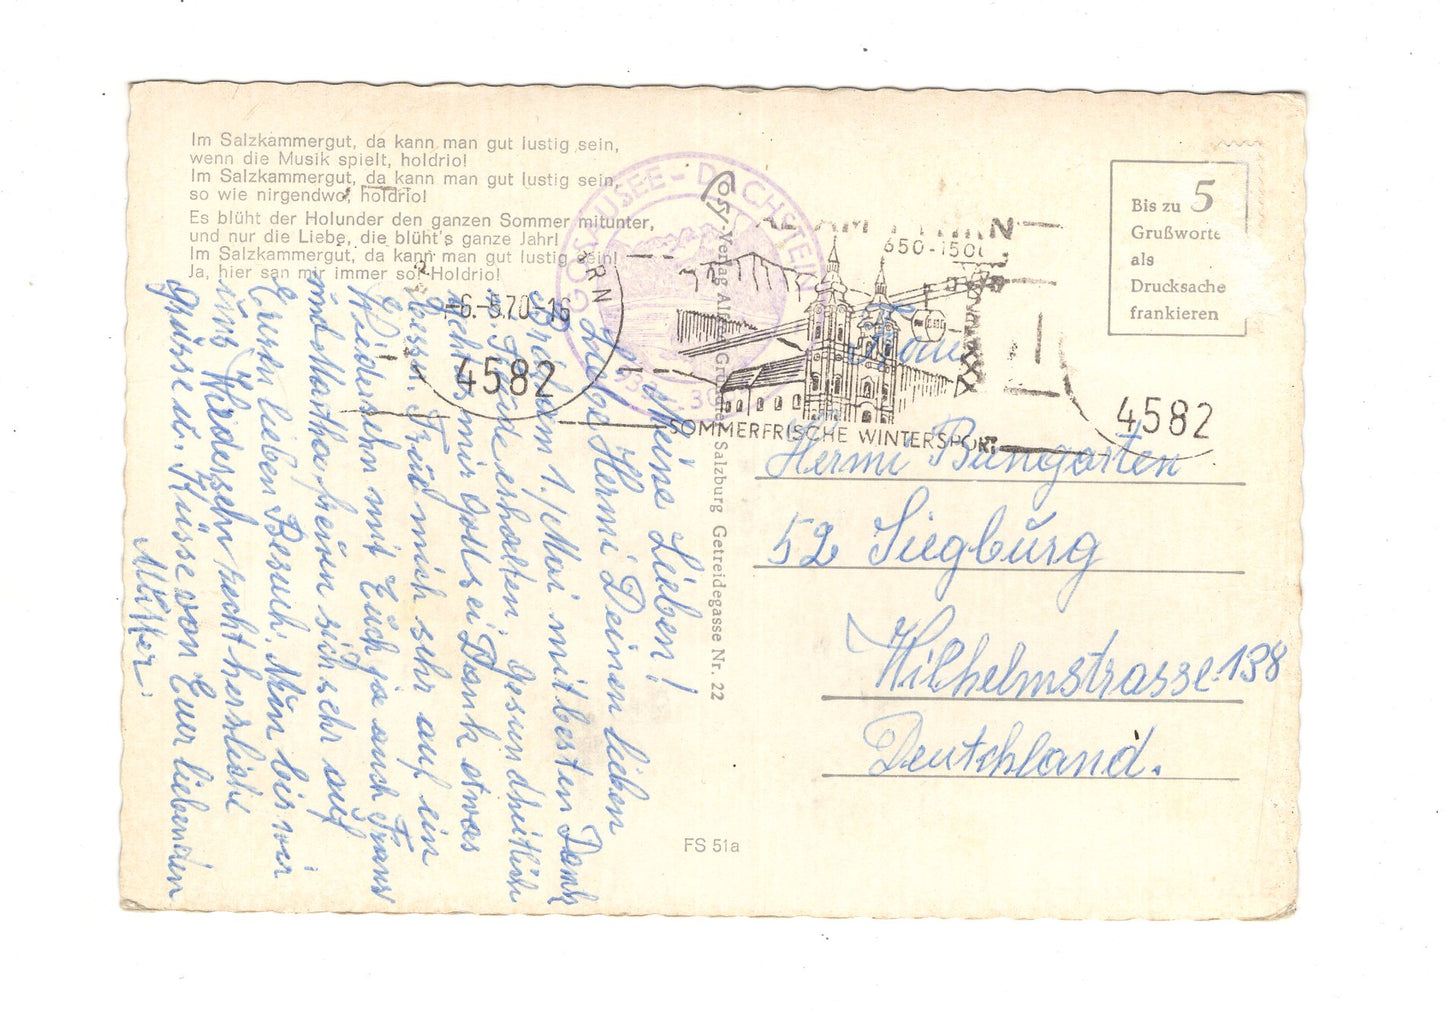 Im Salzkammergut, da kann man gut lustig sein,
wenn die Musik spielt, holdrio!
Im Salzkammergut, da kann man gut lustig sein,
so wie nirgendwo, holdrio!
Es blüht der Holunder den ganzen Sommer mitunter,
und nur die Liebe, die blüht's ganze Jahr!
Im Salzkammergut, da kann man gut lustig sein!
Ja, hier san mir immer so! Holdrio!
Bis zu 5
Grußworte
als
Drucksache
frankieren
GOSAUSEE - DACHSTEIN
-6.-5.70-16
4582
650-150
SOMMERFRISCHE WINTERSPORT
4582
Cosy-Verlag Salzburg Getreidegasse Nr. 22
FS 51a
Frau
Hermi Bungarten
52 Siegburg
Wilhelmstrasse 138
Deutchland.
Meine Lieben!
Liebe Hermi Deinen lieben
1. Mai mit besten Dank
erhalten, Gesundheitlich
gehts mir Gott sei Dank etwas
besser. Freu mich sehr auf ein
Wiedersehn mit Euch ja auch Franz
und Martha freuen sich sehr auf
Euern lieben Besuch. Nun bis wir
uns Wiedersehn recht herzliche
Grüsse u. Küsse von Euer liebenden
Mutter.